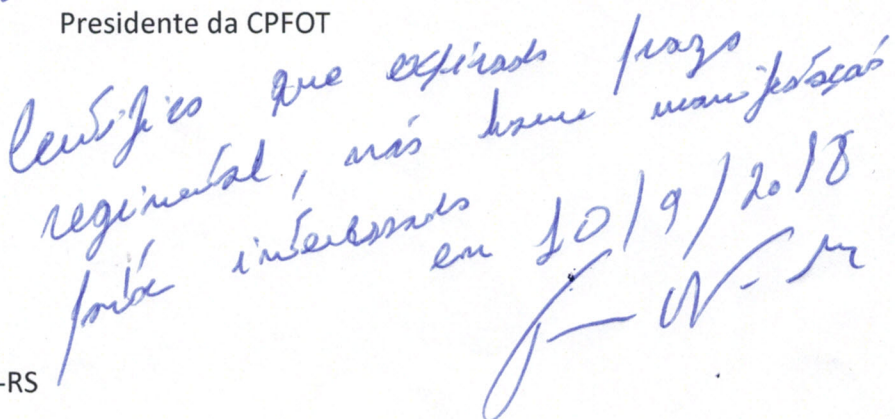 Presidente da CPFOT
Certifico que expirado prazo
regimental, não houve manifestação
interessado
em 10/9/2018
-RS